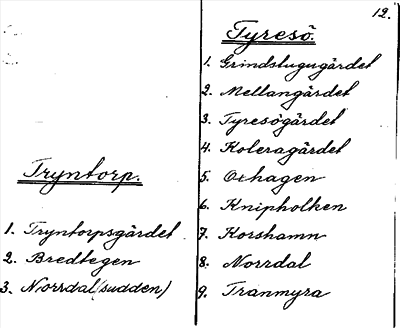 12.
Tryntorp.
1. Tryntorpsgärdet
2. Bredtegen
3. Norrdal (sudden)
Tyresö.
1. Grindstugugärdet
2. Mellangärdet
3. Tyresögärdet
4. Koleragärdet
5. Oxhagen
6. Knipholken
7. Korshamn
8. Norrdal
9. Tranmyra